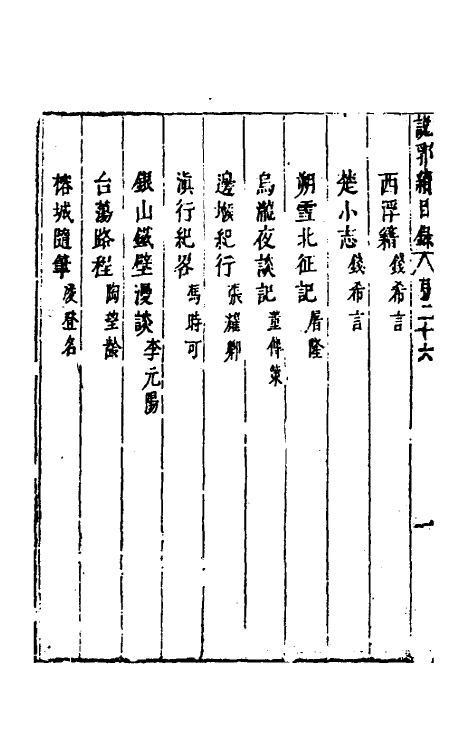 說郛續目錄 弓二十六 一
西浮籍 錢希言
楚小志 錢希言
朔雪北征記 屠隆
烏瀧夜談記 董傳策
邊堠紀行 張耀卿
滇行紀畧 馮時可
銀山鐵壁漫談 李元陽
台蕩路程 陶望齡
榕城隨筆 凌登名